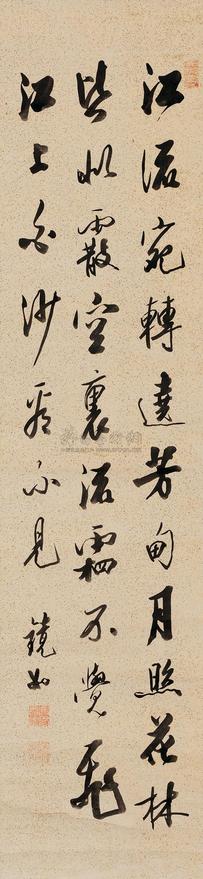 江流宛轉遶芳甸月照花林
皆似霰空裏流霜不覺飛
江上白沙看不見